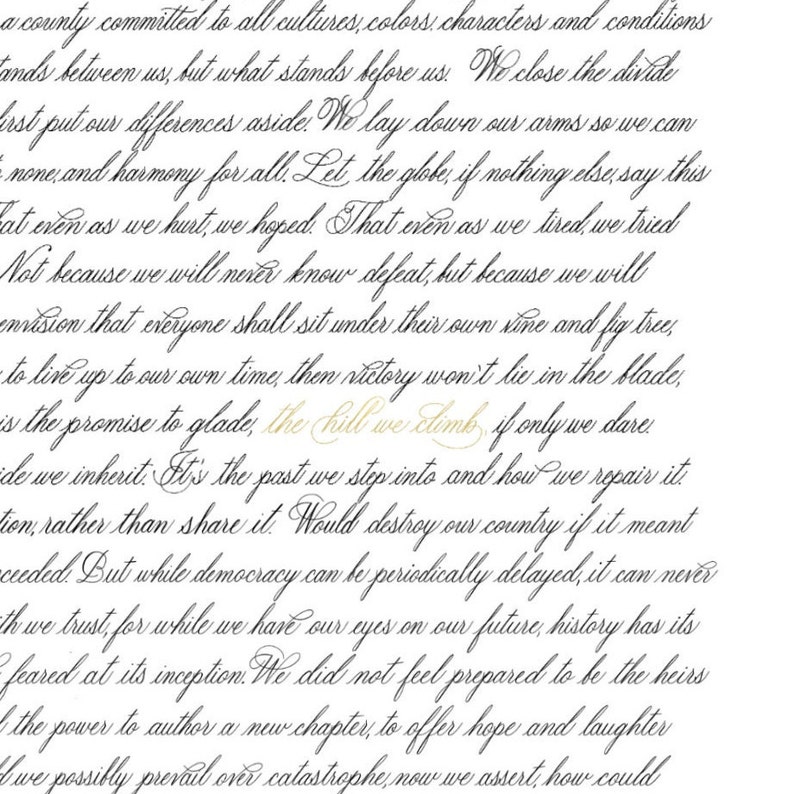 a county committed to all cultures, colors, characters and conditions
tands between us, but what stands before us. We close the divide
first put our differences aside. We lay down our arms so we can
none, and harmony for all. Let the globe, if nothing else, say this
hat even as we hurt, we hoped. That even as we tired, we tried
Not because we will never know defeat, but because we will
envision that everyone shall sit under their own vine and fig tree,
to live up to our own time, then victory won't lie in the blade,
is the promise to glade, the hill we climb, if only we dare.
ide we inherit. It's the past we step into and how we repair it.
tion, rather than share it. Would destroy our country if it meant
ceeded. But while democracy can be periodically delayed, it can never
ith we trust, for while we have our eyes on our future, history has its
feared at its inception. We did not feel prepared to be the heirs
the power to author a new chapter, to offer hope and laughter
d we possibly prevail over catastrophe, now we assert, how could